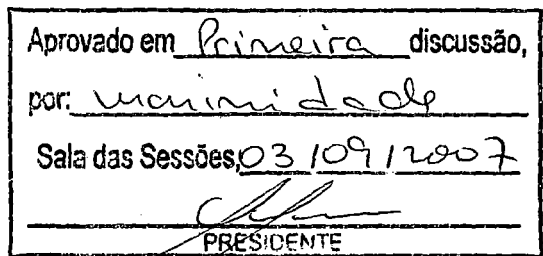 Aprovado em Primeira discussão,
por: unanimidade
Sala das Sessões, 03/09/2007
PRESIDENTE